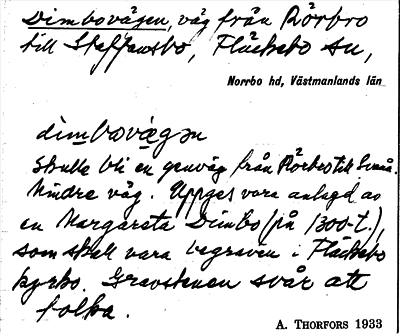 Dimbovägen, väg från Rörbro
till Staffansbo, Fläckebo sn,
Norrbo hd, Västmanlands län
dimbovægen
Skulle bli en genväg från Rörbro till Svanå.
Mindre väg. Uppges vara anlagd av
en Margareta Dimbo (på 1300-t.),
som skall vara begraven i Fläckebo
kyrko. Gravstenen svår att
tolka.
A. THORFORS 1933